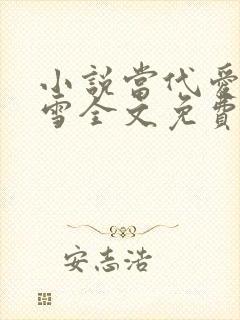 小說當代愛
雪全文免費
安志浩